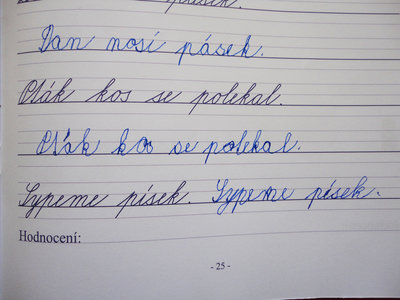 Dan nosí pásek.
Pták kos se polekal.
Pták kos se polekal.
Sypeme písek. Sypeme písek.
Hodnocení:
- 25 -